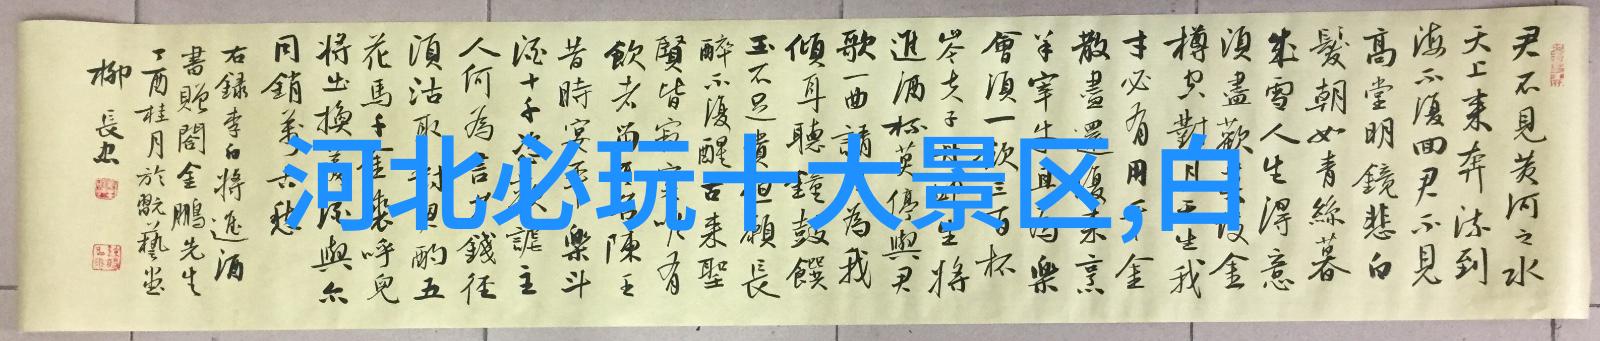 君不見黃河之水
天上来奔流到
海不復回君不見
高堂明鏡悲白
髮朝如青絲暮
成雪人生得意
須盡歡
金
樽空對月
生我
才必有用
金
散盡還復来烹
羊宰牛且為樂
會須一飲三百杯
岑夫子
生將
進酒杯莫停與君
歌一曲請
為我
傾耳聽鐘鼓饌
玉不足貴但願長
醉不復醒古来聖
賢皆寂寞
有
飲者
陳王
昔時宴平樂斗
酒十千恣
謔主
人何為言
錢径
須沽取對君酌五
花馬千金裘呼兒
將出換
與尔
同銷萬古愁
右録李白將進酒
書贈閣金鵬先生
丁酉桂月於
藝堂
柳長忠
河北必玩十大景区,白